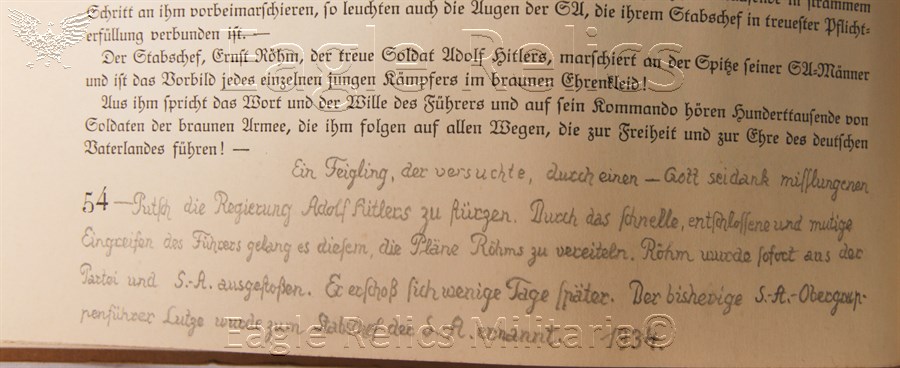 Schritt an ihm vorbeimarschieren, so leuchten auch die Augen der SA, die ihrem Stabschef in treuester Pflicht-
erfüllung verbunden ist. —
Der Stabschef, Ernst Röhm, der treue Soldat Adolf Hitlers, marschiert an der Spitze seiner SA-Männer
und ist das Vorbild jedes einzelnen jungen Kämpfers im braunen Ehrenkleid!
Aus ihm spricht das Wort und der Wille des Führers und auf sein Kommando hören Hunderttausende von
Soldaten der braunen Armee, die ihm folgen auf allen Wegen, die zur Freiheit und zur Ehre des deutschen
Vaterlandes führen! —
Ein Feigling, der versuchte, durch einen — Gott sei dank misslungenen
54 — Putsch die Regierung Adolf Hitlers zu stürzen. Durch das schnelle, entschlossene und mutige
Eingreifen des Führers gelang es diesem, die Pläne Röhms zu vereiteln. Röhm wurde sofort aus der
Partei und S.-A. ausgestoßen. Er erschoß sich wenige Tage später. Der bisherige S.-A.-Obergrup-
penführer Lutze wurde zum Stabschef der S.A. ernannt. 1934.
Eagle Relics
Eagle Relics Militaria ©